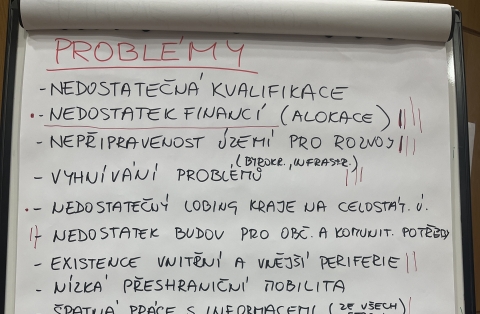 PROBLÉMY
- NEDOSTATEČNÁ KVALIFIKACE
- NEDOSTATEK FINANCÍ (ALOKACE)
- NEPŘIPRAVENOST ÚZEMÍ PRO ROZVOJ
(BYROKR., INFRASTR.)
- VYHNÍVÁNÍ PROBLÉMŮ
- NEDOSTATEČNÝ LOBING KRAJE NA CELOSTÁT. Ú.
NEDOSTATEK BUDOV PRO OBČ. A KOMUNIT. POTŘEBY
- EXISTENCE VNITŘNÍ A VNĚJŠÍ PERIFERIE
- NÍZKÁ PŘESHRANIČNÍ MOBILITA
ŠPATNÁ PRÁCE S INFORMACEMI (ZE VŠECH